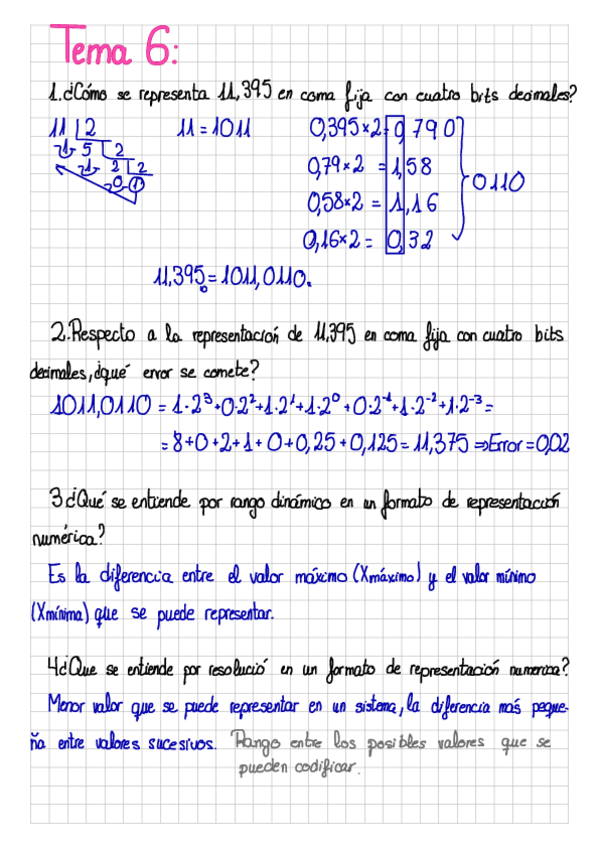 Tema 6:
1.¿Cómo se representa 11,395 en coma fija con cuatro bits decimales?
11 | 2
1 5 | 2
1 2 | 2
0 1
11 = 1011
0,395×2=0,790
0,79×2 = 1,58
0,58×2 = 1,16
0,16×2 = 0,32
0110
11,395 = 1011,0110.
2.Respecto a la representación de 11,395 en coma fija con cuatro bits
decimales, ¿qué error se comete?
1011,0110 = 1·2³+0·2²+1·2¹+1·2⁰+0·2⁻¹+1·2⁻²+1·2⁻³=
= 8+0+2+1+0+0,25+0,125=11,375 ⇒Error=0,02
3¿Qué se entiende por rango dinámico en un formato de representación
numérica?
Es la diferencia entre el valor máximo (Xmáximo) y el valor mínimo
(Xmínima) que se puede representar.
4¿Que se entiende por resolució en un formato de representación numerica?
Menor valor que se puede representar en un sistema, la diferencia más peque-
ña entre valores sucesivos. Rango entre los posibles valores que se
pueden codificar.